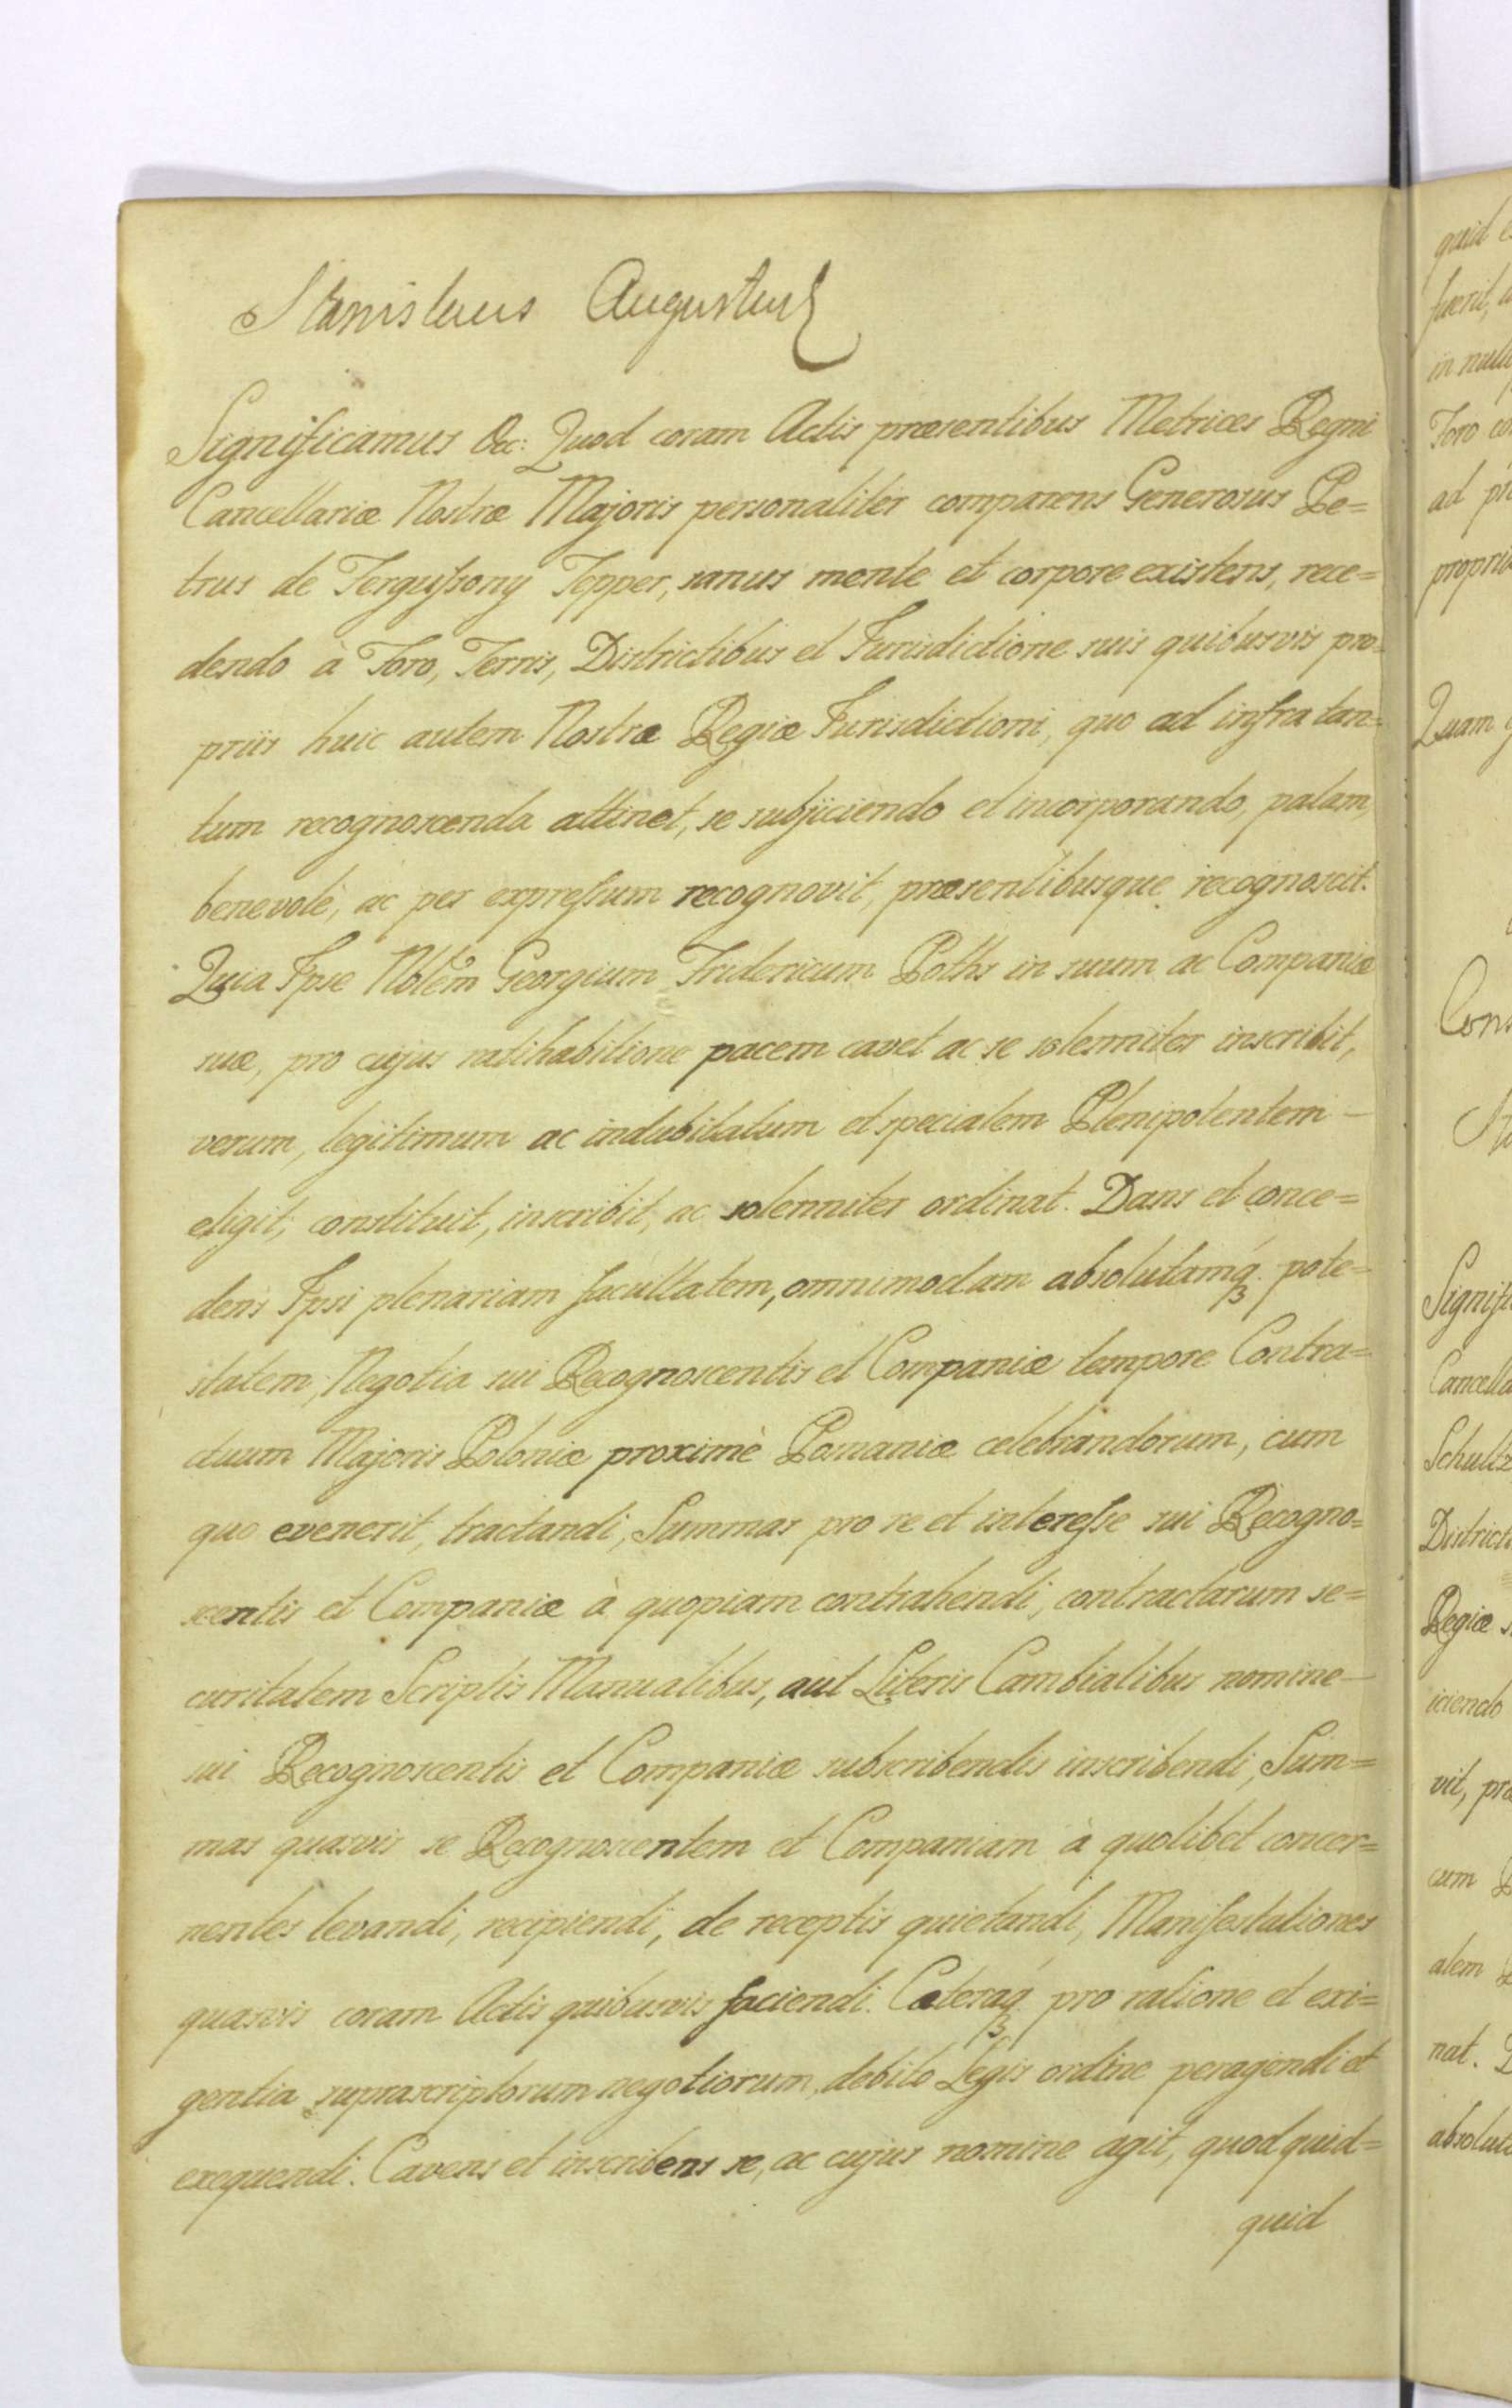 Stanislaus Augustus
Significamus &c: Quod coram Actis præsentibus Metrices Regni
Cancellariæ Nostræ Majoris personaliter comparens Generosus Pe=
trus de Fergussony Tepper, sanus mente et corpore existens, rece=
dendo à Foro, Terris, Districtibus et Jurisdictione suis quibusvis pro=
priis huic autem Nostræ Regiæ Jurisdictioni, quo ad infra tan=
tum recognoscenda attinet, se subjiciendo et incorporando, palam,
benevolè, ac per expressum recognovit, præsentibusque recognoscit.
Quia Ipse Nobĩlem Georgium Fridericum Poths in suum ac Companiæ
suæ, pro cujus ratihabitione pacem cavet ac se solenniter inscribit,
verum, legitimum ac indubitatum et specialem Plenipotentem –
eligit, constituit, inscribit, ac solenniter ordinat. Dans et conce=
dens Ipsi plenariam facultatem, omnimodam absolutamq́ꝫ pote=
statem, Negotia sui Recognoscentis et Companiæ tempore Contra=
ctuum Majoris Poloniæ proximè Posnaniæ celebrandorum, cum
quo evenerit, tractandi, Summas pro re et interesse sui Recogno=
scentis et Companiæ à quopiam contrahendi, contractarum se=
curitatem Scriptis Manualibus, aut Literis Cambialibus nomine –
sui Recognoscentis et Companiæ subscribendis inscribendi, Sum=
mas quasvis se Recognoscentem et Companiam à quolibet concer=
nentes levandi, recipiendi, de receptis quietandi, Manifestationes
quasvis coram Actis quibusvis faciendi. Cæteraq́ꝫ pro ratione et exi=
gentia suprascriptorum negotiorum, debito Legis ordine peragendi et
exequendi. Cavens et inscribens se, ac cujus nomine agit, quod quid=
quid
quid
in
Foro
ad
Quam
Cancella
Schultz
District
Regiæ
iciendo
vit,
cum
nat.